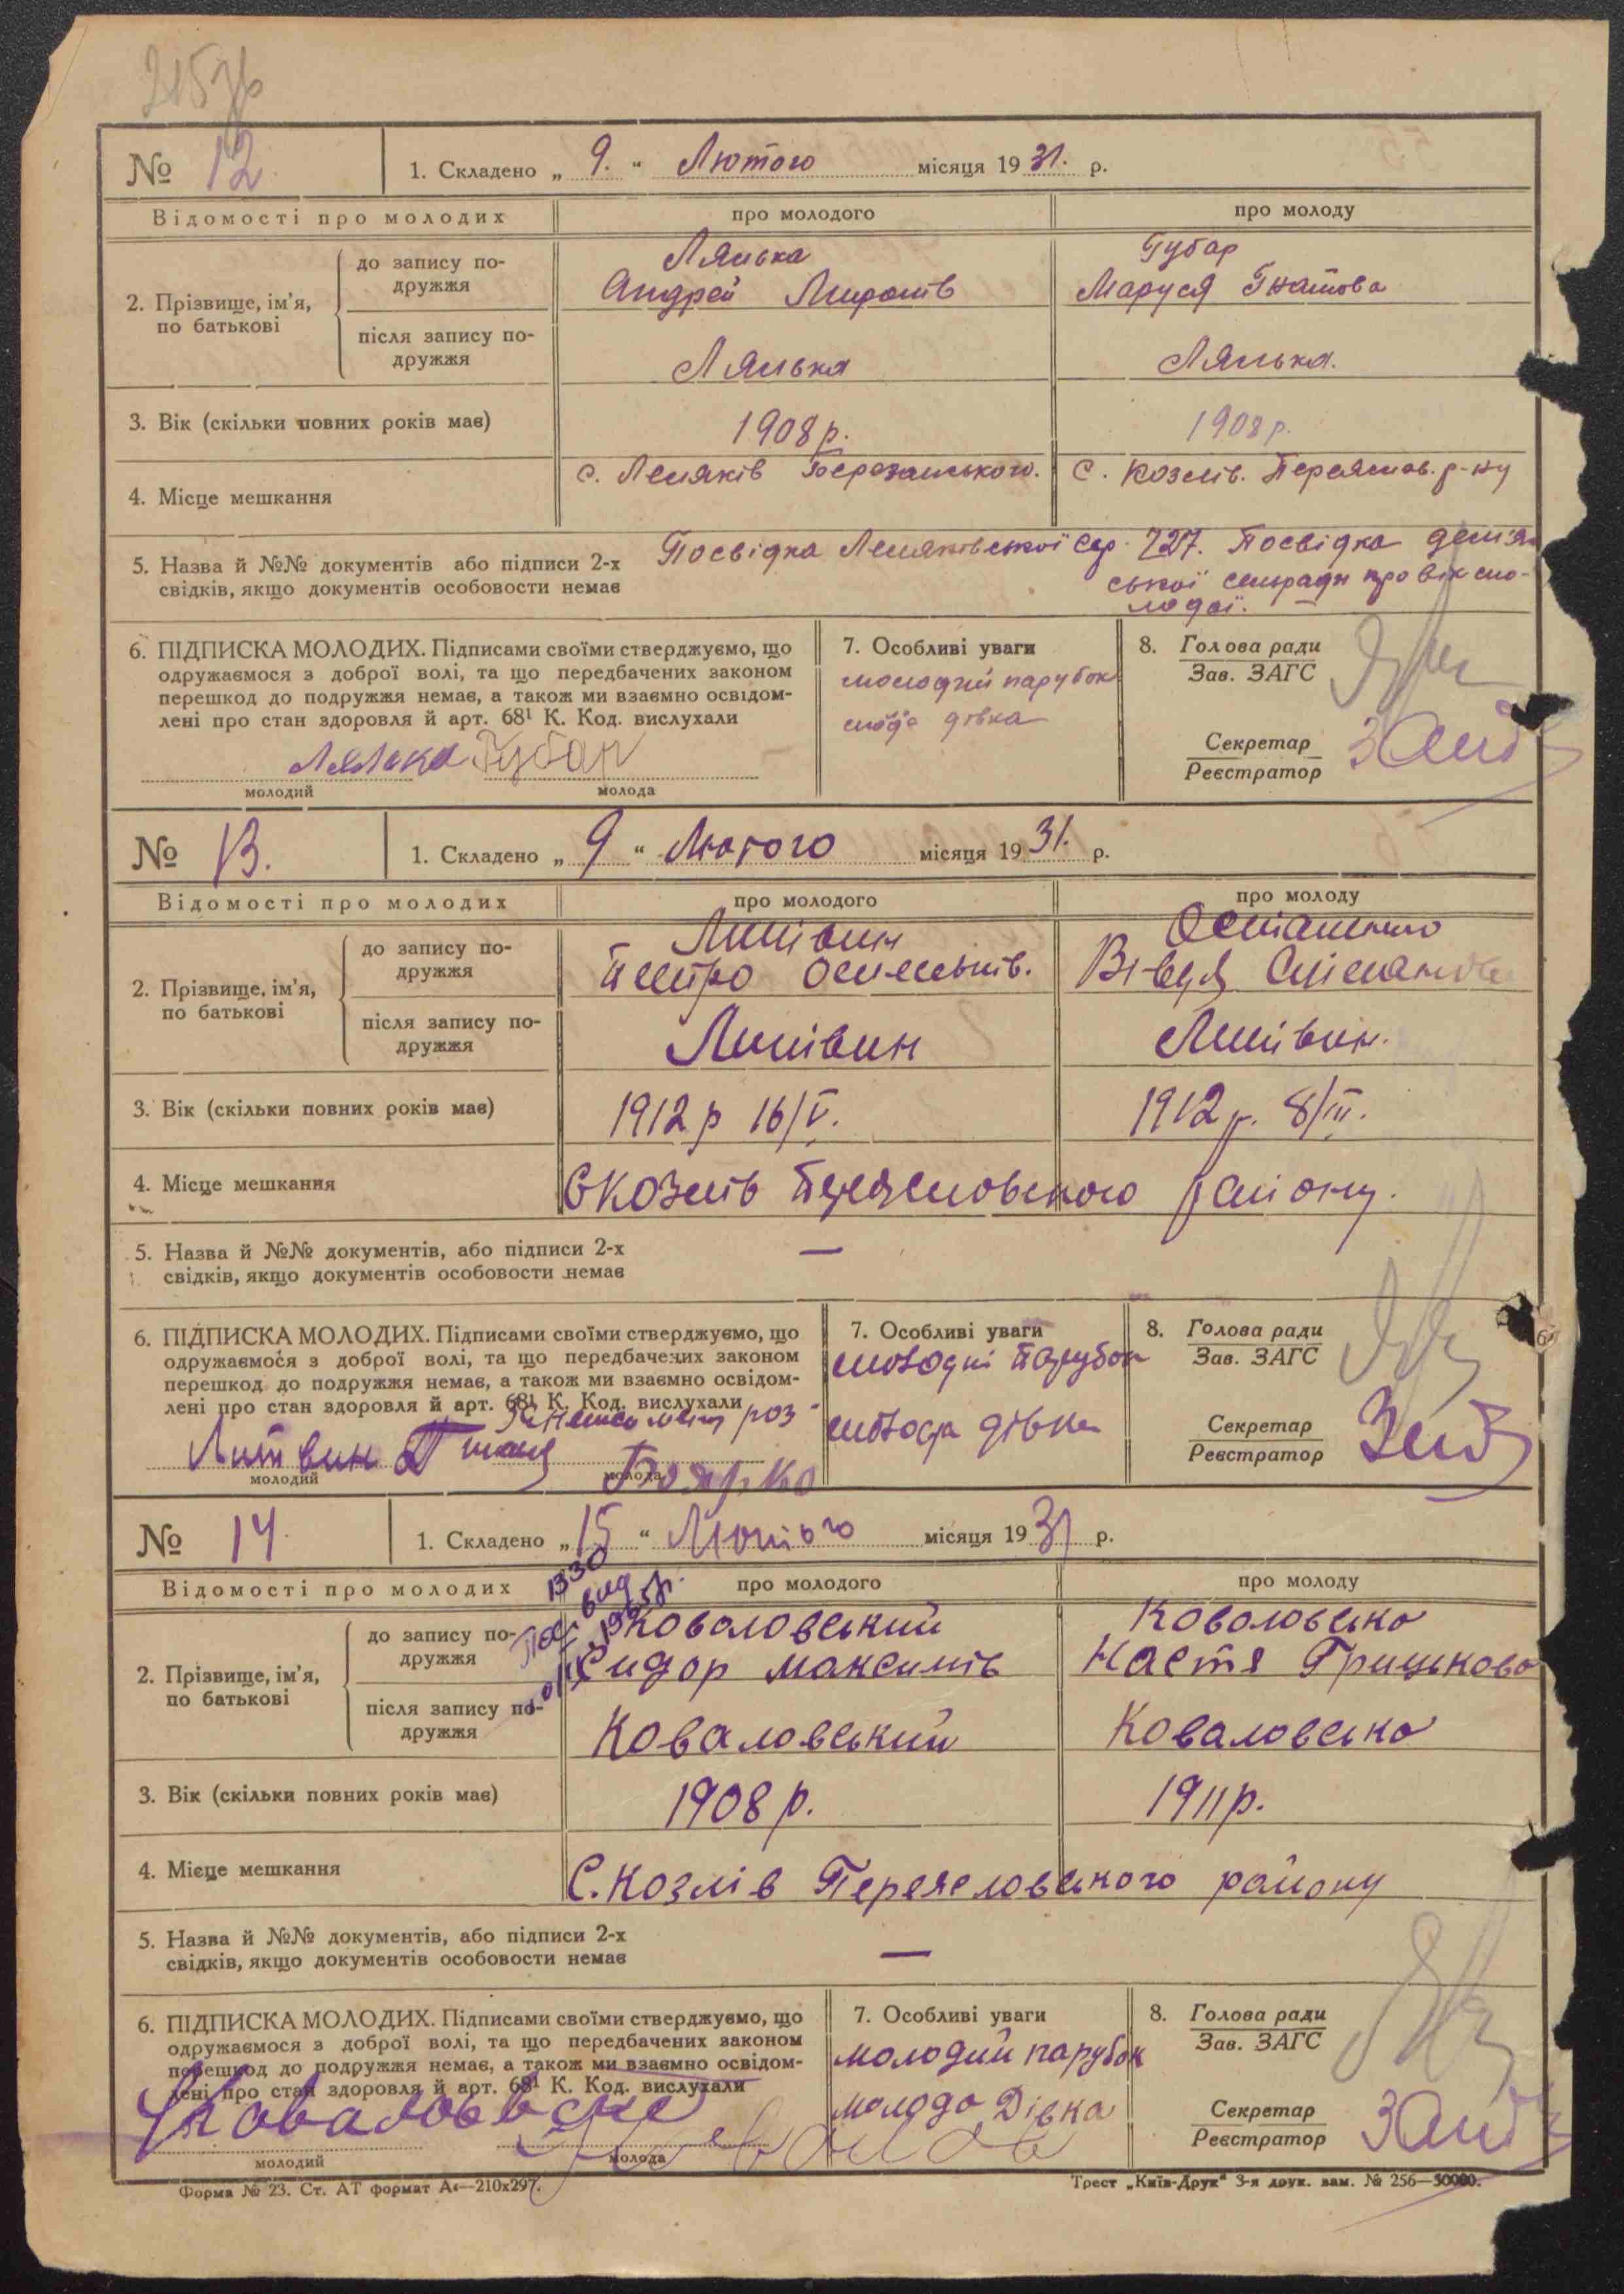 215зв
№ 12. 1. Складено „ 9. “ Лютого місяця 19 31. р.
Відомості про молодих про молодого про молоду
2. Прізвище, ім’я, по батькові
до запису по-
дружжя
Лялька
Андрей Миронів
Губар
Маруся Гнатова
після запису по-
дружжя
Лялька
Лялька.
3. Вік (скільки повних років має) 1908 р. 1908 р.
4. Місце мешкання с. Лемяків Березанського. с. Козлів. Переяслав. р-ну
5. Назва й №№ документів або підписи 2-х
свідків, якщо документів особовости немає
Посвідка Лемяківської с/р. 727. Посвідка дем'ян
ської сельради про вік мо-
лодої.
6. ПІДПИСКА МОЛОДИХ. Підписами своїми стверджуємо, що
одружаємося з доброї волі, та що передбачених законом
перешкод до подружжя немає, а також ми взаємно освідом-
лені про стан здоровля й арт. 68¹ К. Код. вислухали
Лялька Губар
молодий молода
7. Особливі уваги
молодий парубок
дівка
8. Голова ради
Зав. ЗАГС
Секретар
Реєстратор
№ 13. 1. Складено „ 9 “ Лютого місяця 19 31. р.
Відомості про молодих про молодого про молоду
2. Прізвище, ім’я,
по батькові
до запису по-
дружжя
Литвин
Петро
після запису по-
дружжя
Литвин
Литвин.
3. Вік (скільки повних років має) 1912 р 16/V. 1912 р. 8/III.
4. Місце мешкання С Козлів Переяславського району.
5. Назва й №№ документів, або підписи 2-х
свідків, якщо документів особовости немає
—
6. ПІДПИСКА МОЛОДИХ. Підписами своїми стверджуємо, що
одружаємося з доброї волі, та що передбачених законом
перешкод до подружжя немає, а також ми взаємно освідом-
лені про стан здоровля й арт. 68¹ К. Код. вислухали
Литвин П
Боярко
молодий молода
7. Особливі уваги
молодий парубок
молода дівка
8. Голова ради
Зав. ЗАГС
Секретар
Реєстратор
№ 14. 1. Складено „ 15 “ Лютого місяця 19 31 р.
Відомості про молодих про молодого про молоду
2. Прізвище, ім’я,
по батькові
до запису по-
дружжя
Коваловський
Сидор Максимів
Коваловська
Настя Грицькова
після запису по-
дружжя
Коваловський
Коваловська
3. Вік (скільки повних років має) 1908 р. 1911 р.
4. Місце мешкання С. Козлів Переяславського району
5. Назва й №№ документів, або підписи 2-х
свідків, якщо документів особовости немає
—
6. ПІДПИСКА МОЛОДИХ. Підписами своїми стверджуємо, що
одружаємося з доброї волі, та що передбачених законом
перешкод до подружжя немає, а також ми взаємно освідом-
лені про стан здоровля й арт. 68¹ К. Код. вислухали
молодий молода
7. Особливі уваги
молодий парубок
молода Дівка
8. Голова ради
Зав. ЗАГС
Секретар
Реєстратор
Форма № 23. Ст. АТ формат А₄—210х297.
Трест „Київ-Друк“ 3-я друк. зам. № 256—50000.